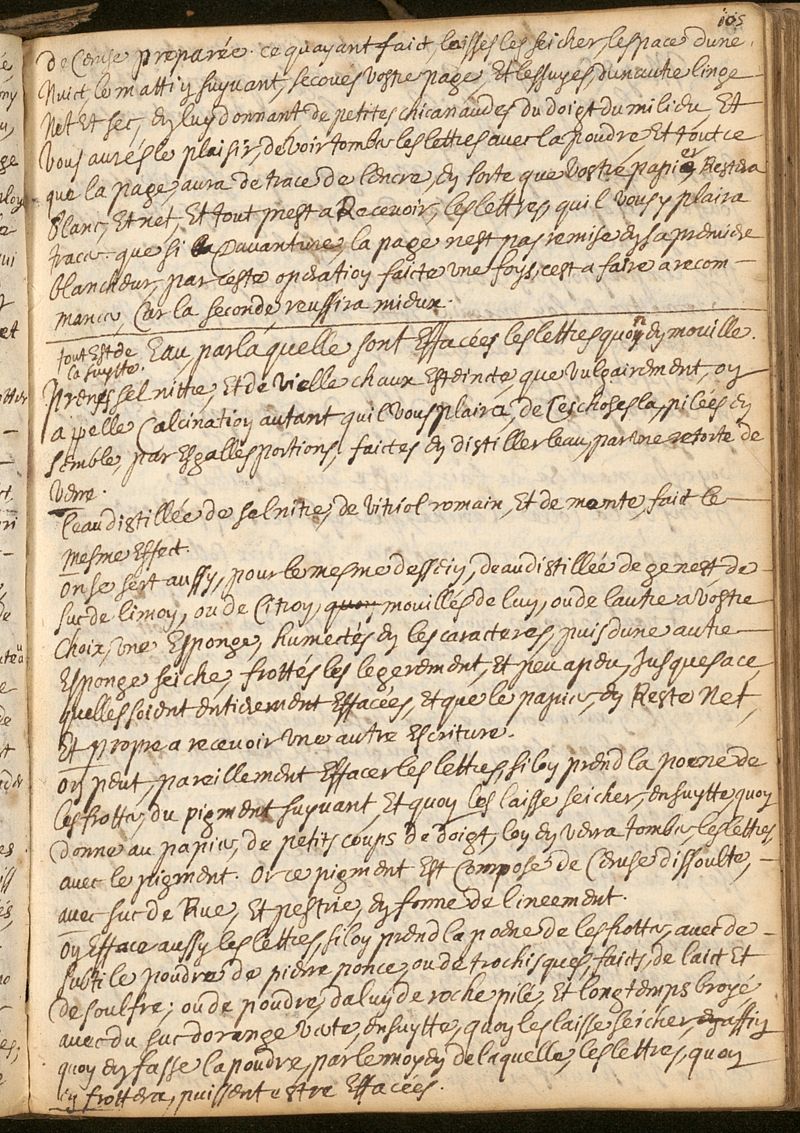 105
de Ceruse preparée. ce quayant faict, laisses les seicher, lespace dune
Nuict, le mattin suyvant, secoues vostre page, Et lessuyes dun autre linge
Net Et sec, en luy donnant de petites chicanaudes du doigt du milieu, Et
vous aures le plaisir, de voir tomber les lettres avec la poudre, Et tout ce
que la page, aura de trace de lencre, en sorte que vostre papier, Restera
blanc, Et net, Et tout prest a Recevoir, les lettres, quil vous y plaira
tracer. que si Davanture, la page nest pas remise en sa premiere
blancheur, par ceste operation faicte une foys, cest a faire a recom-
mancer, Car la seconde reussira mieux.
tout Est de
la suytte.
Eau, par laquelle sont Effacées les lettres quon en mouille.
Prenes sel nitre, Et de vielle chaux Esteincte, que vulgairement, on
appelle Calcination autant quil vous plaira, de Ces choses la, pilées en
semble, par Esgalles portions, faictes en distiller leau, par une retorte de
verre.
leau distillée de sel nitre, de vitriol romain, Et de mente, faict le
mesme Effect.
on se sert aussy, pour le mesme dessein, deau distillée de genest de
suc de limon, ou de Citron, quon mouillés de luy, ou de lautre a vostre
Choix, une Esponge, humectés en les caracteres, puis dune autre
Esponge seiche, frottés les legerement, Et peu a peu, Jusques a ce,
quelles soient entierement Effacées, Et que le papier, en Reste Net,
Et propre a recevoir une autre Escriture.
on peut, pareillement Effacer les lettres, si lon prend la peene de
les frotter, du pigment suyvant, Et quon les laisse seicher, ensuytte, quon
donne au papier, de petits coups de doigt, lon en verra tomber, les lettres
avec le pigment. Or ce pigment Est Composé de Ceruse dissoulte,
avec suc de Rue, Et pestrie, en forme de lineement.
on Efface aussy les lettres, si lon prend la peene de les frotter, avec de
subtile poudre de pierre ponce, ou de trochisques, faicts, de laict Et
de soulfre; ou de poudre, dalun de roche pilé, Et long temps broyé
avec du suc dorange verte, ensuytte, quon les laisse seicher, affin
quon en fasse la poudre, par le moyen de laquelle, les lettres, quon
en frottera, puissent estre Effacées.